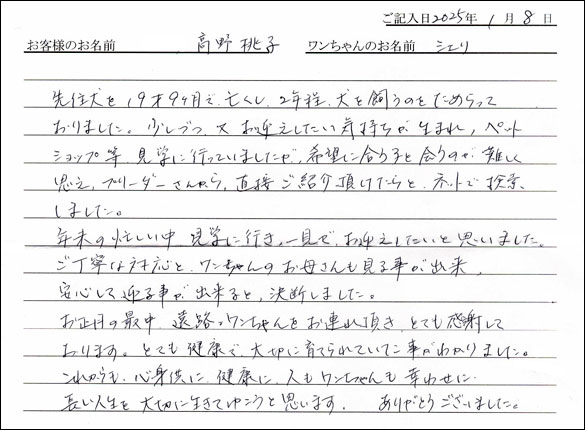 ご記入日2025年1月8日
お客様のお名前 高野桃子 ワンちゃんのお名前 シェリ
先住犬を19才9ヶ月で亡くし、2年程、犬を飼うのをためらって
おりました。少しづつ、又お迎えしたい気持ちが生まれ、ペット
ショップ等、見学に行っていましたが、希望に合う子と会うのが難しく
思え、ブリーダーさんから、直接ご紹介頂けたらと、ネットで検索
しました。
年末の忙しい中 見学に行き、一見で、お迎えしたいと思いました。
ご丁寧な対応と、ワンちゃんのお母さんも見る事が出来、
安心して迎る事が出来ると、決断しました。
お正月の最中、遠路ワンちゃんをお連れ頂き、とても感謝して
おります。とても健康で、大切に育てられていた事がわかりました。
これからも、心身供に、健康に、人もワンちゃんも幸わせに
長い人生を大切に生きてゆこうと思います。 ありがとうございました。